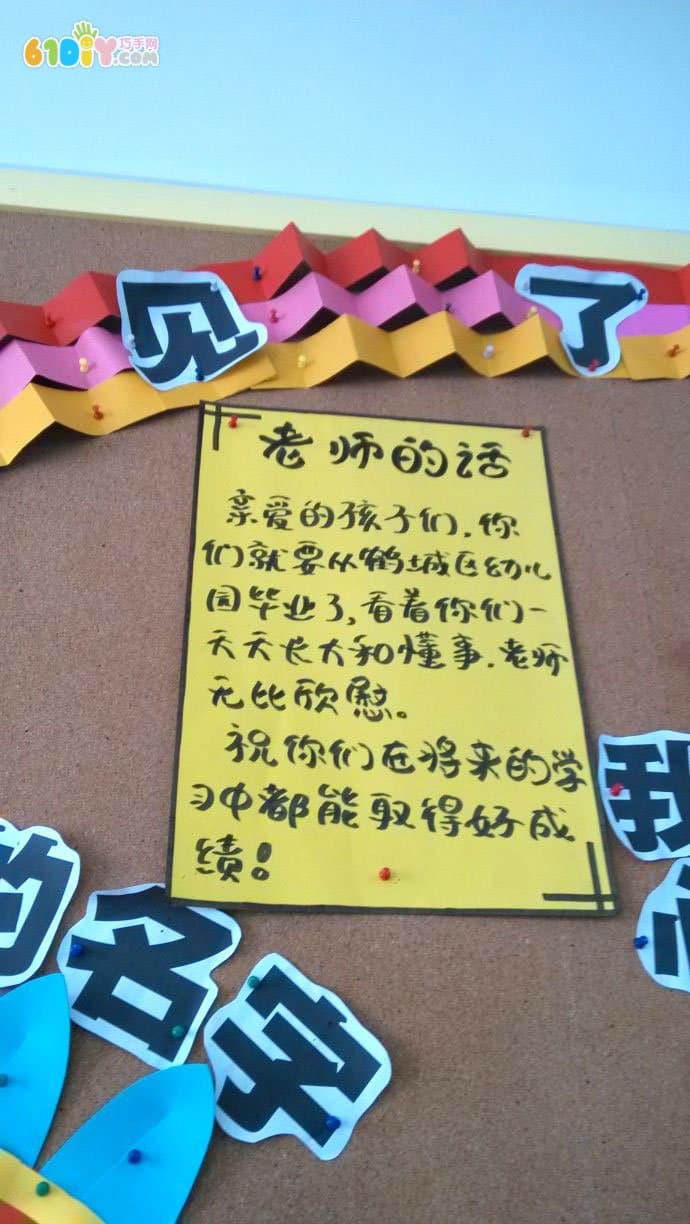 61DIY巧手网
.COM
见
了
老师的话
亲爱的孩子们,你
们就要从鹤城区幼儿
园毕业了,看着你们一
天天长大和懂事.老师
无比欣慰。
祝你们在将来的学
习中都能取得好成
绩!
我
的
名
字